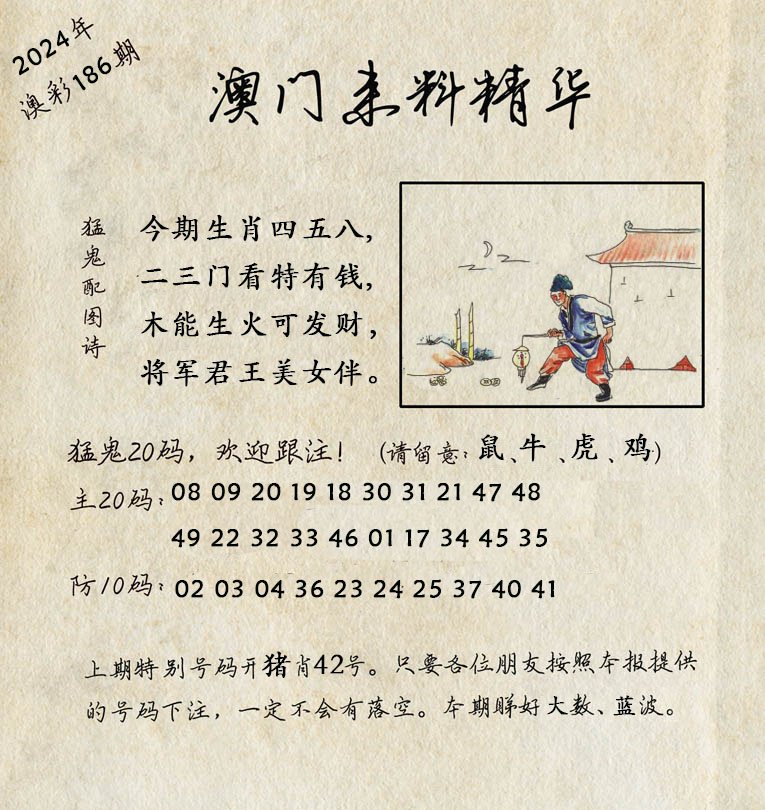 2024年
澳彩186期
澳门来料精华
猛鬼配图诗
今期生肖四五八,
二三门看特有钱,
木能生火可发财,
将军君王美女伴。
猛鬼20码，欢迎跟注！ (请留意:鼠、牛、虎、鸡)
主20码: 08 09 20 19 18 30 31 21 47 48
49 22 32 33 46 01 17 34 45 35
防10码: 02 03 04 36 23 24 25 37 40 41
上期特别号码开猪肖42号。只要各位朋友按照本报提供
的号码下注，一定不会有落空。本期睇好大数、蓝波。